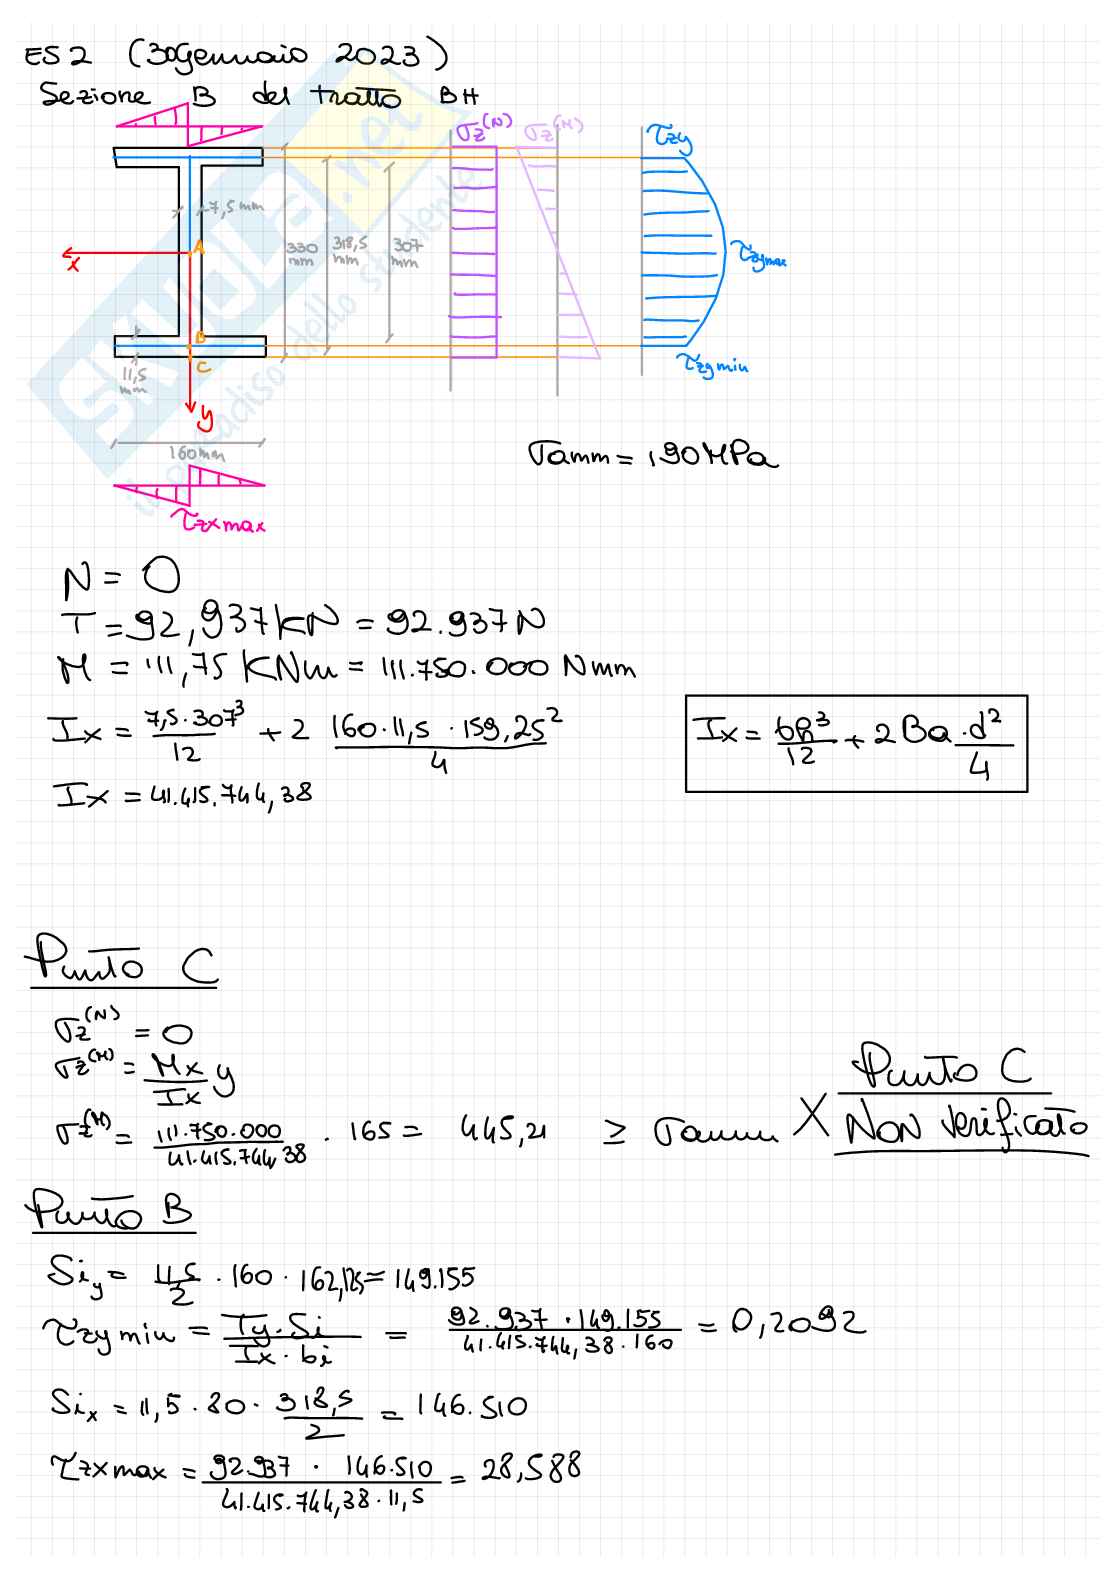 ES 2 (30 Gennaio 2023)
Sezione B del tratto BH
σz(N) σz(M) τzy
7,5 mm
A
x
330 mm
318,5 mm
307 mm
τzymax
B
C
11,5 mm
τzymin
y
160mm
σamm = 190 MPa
τzxmax
N = 0
T = 92,937 kN = 92.937 N
M = 111,75 KNm = 111.750.000 Nmm
Ix = 7,5·307³/12 + 2 160·11,5·159,25²/4
Ix = bh³/12 + 2Ba·d²/4
Ix = 41.415.744,38
Punto C
σz(N) = 0
σz(M) = Mx/Ix y
σz(M) = 111.750.000/41.415.744,38 · 165 = 445,21 ≥ σamm X Punto C Non Verificato
Punto B
Siy = 11,5/2 · 160 · 162,125 = 149.155
τzy min = Ty·Si/Ix·bi = 92.937·149.155/41.415.744,38·160 = 0,2092
Six = 11,5·80·318,5/2 = 146.510
τzx max = 92.937 · 146.510/41.415.744,38·11,5 = 28,588
SKUOLA.net
il paradiso dello studente